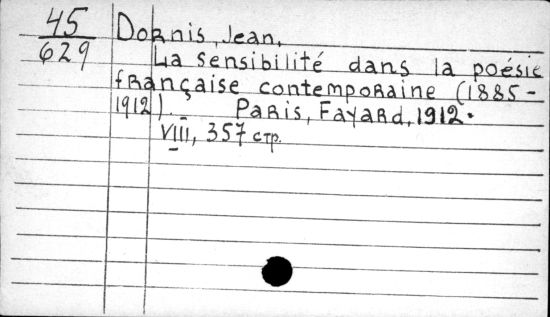 45
629
Dornis, Jean.
La sensibilité dans la poésie
française contemporaine (1885-
1912). Paris, Fayard, 1912.
VIII, 357 стр.